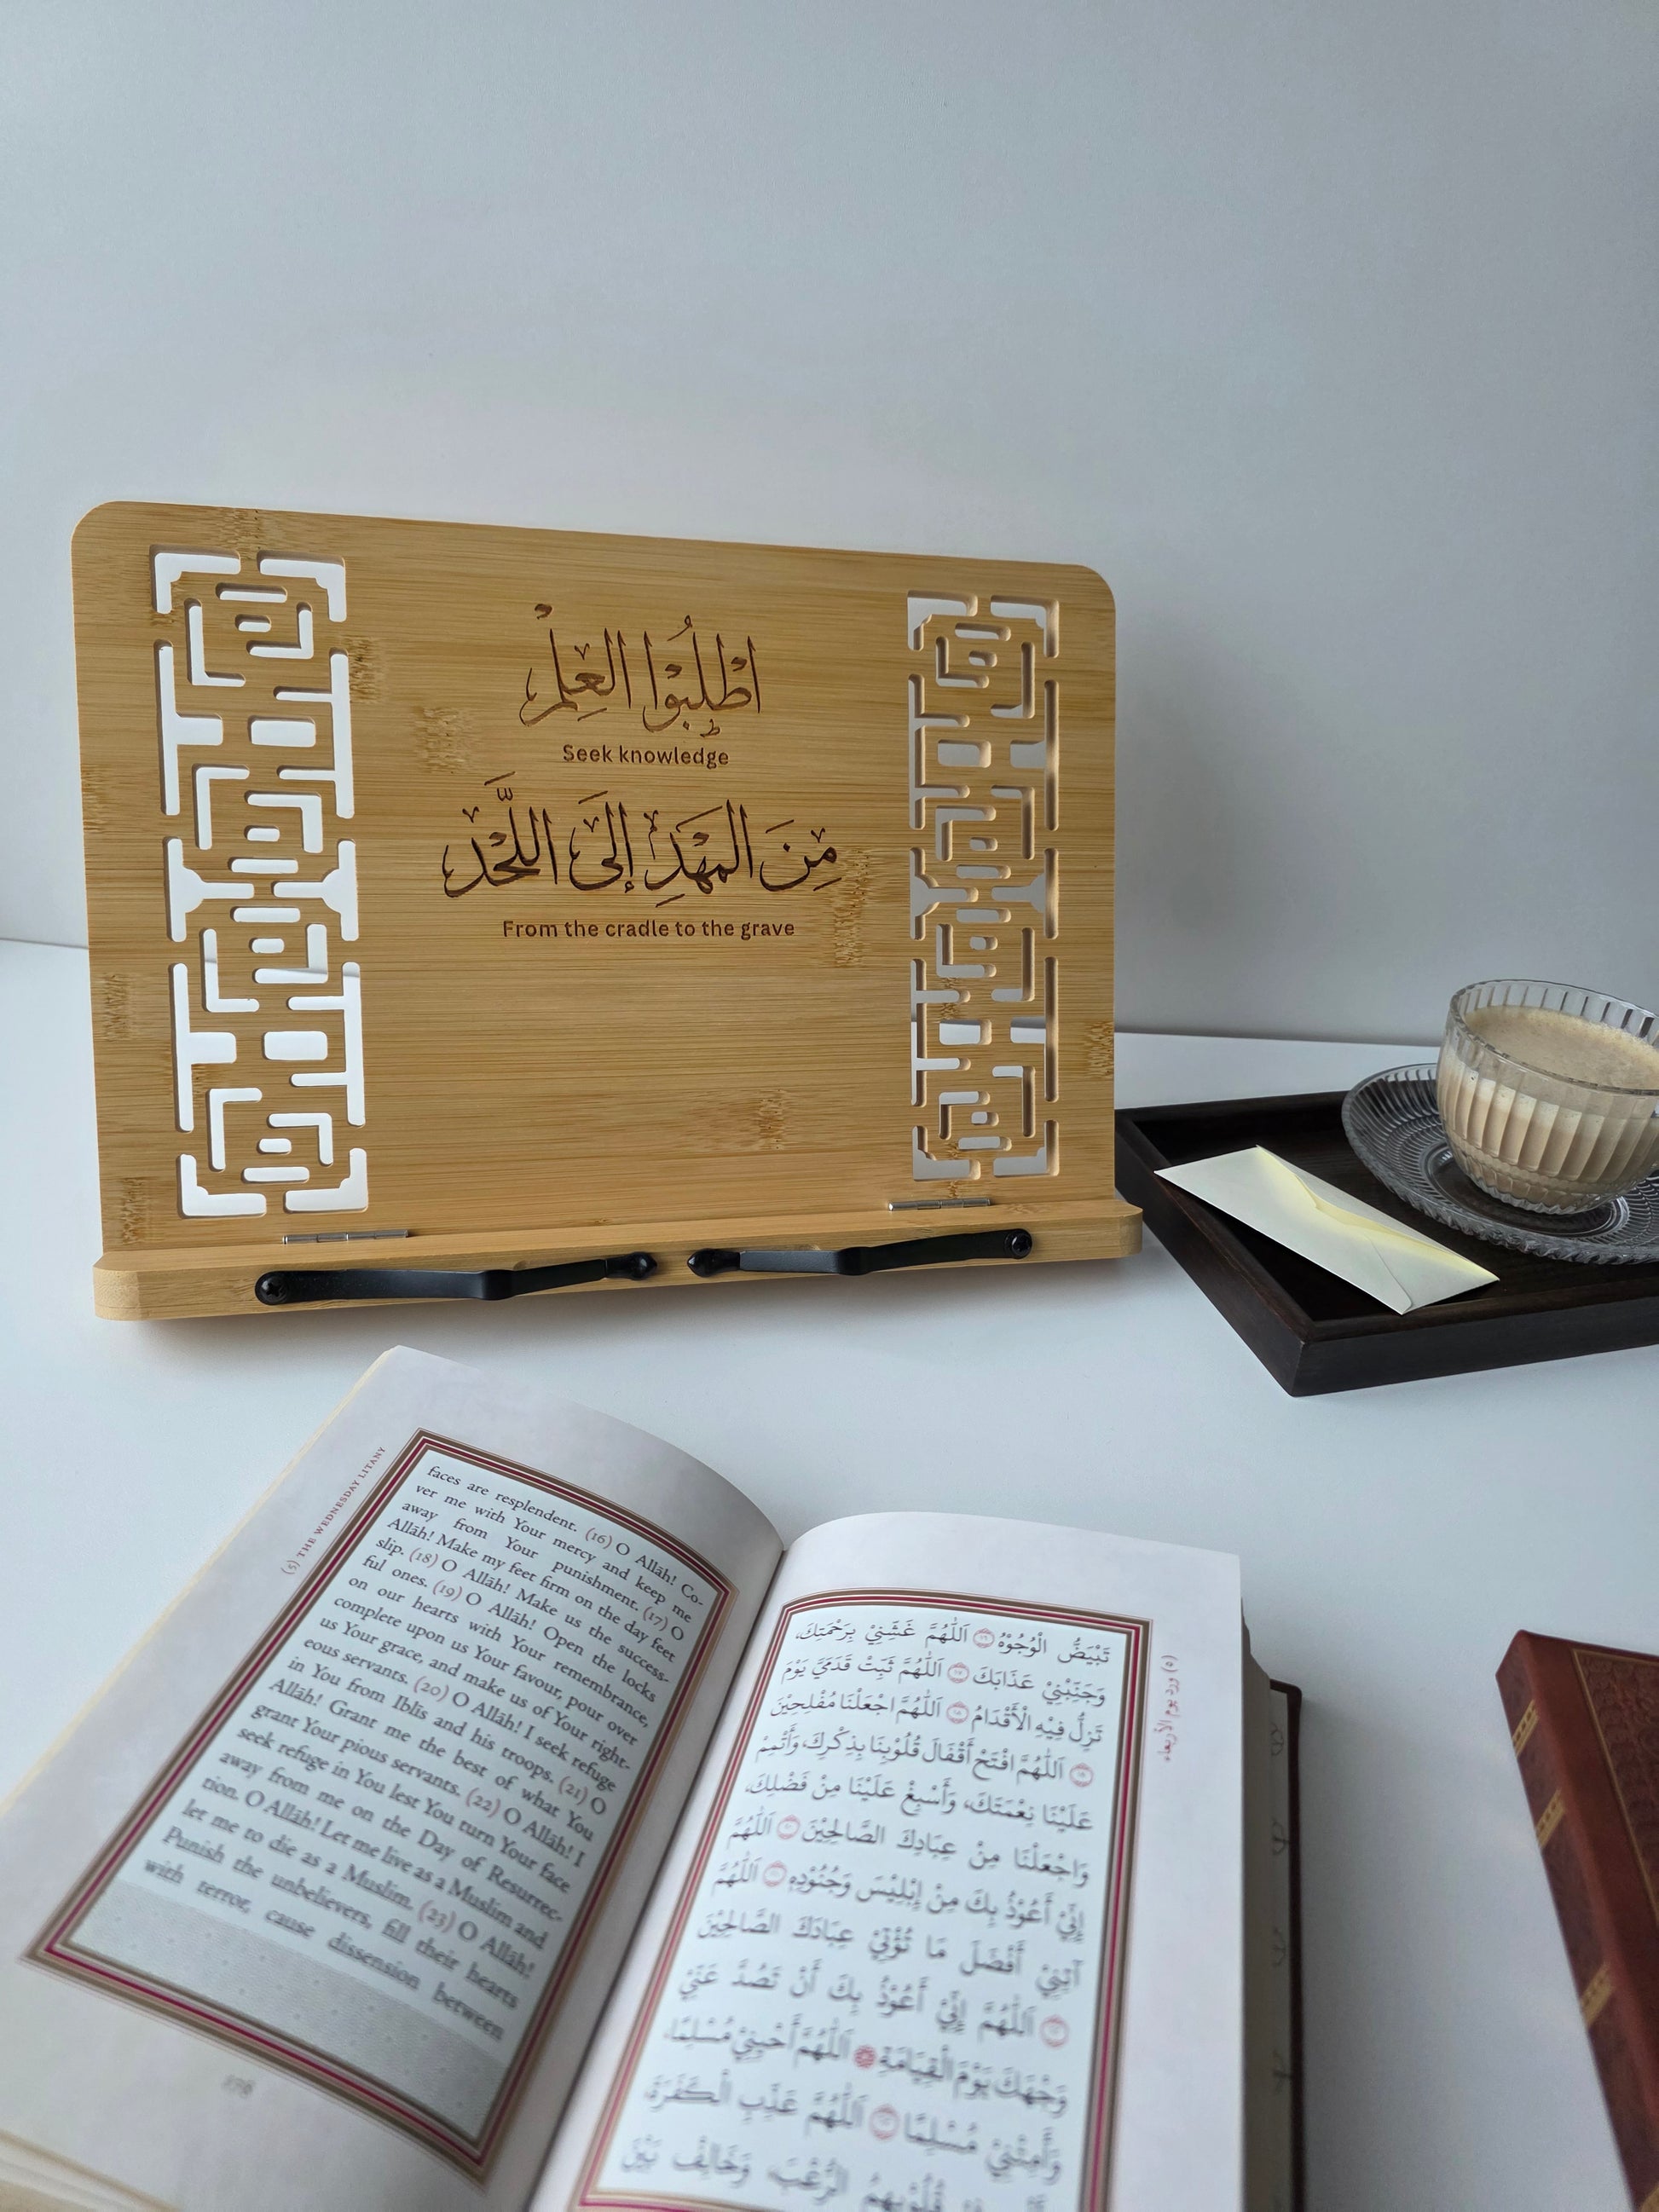 اُطْلُبُوا الْعِلْمَ
Seek knowledge
مِنَ الْمَهْدِ إِلَى اللَّحْدِ
From the cradle to the grave
(5) THE WEDNESDAY LITANY
faces are resplendent. (16) O Allāh! Co-
ver me with Your mercy and keep me
away from Your punishment. (17) O
Allāh! Make my feet firm on the day feet
slip. (18) O Allāh! Make us the success-
ful ones. (19) O Allāh! Open the locks
on our hearts with Your remembrance,
complete upon us Your favour, pour over
us Your grace, and make us of Your right-
eous servants. (20) O Allāh! I seek refuge
in You from Iblīs and his troops. (21) O
Allāh! Grant me the best of what You
grant Your pious servants. (22) O Allāh! I
seek refuge in You lest You turn Your face
away from me on the Day of Resurrec-
tion. O Allāh! Let me live as a Muslim and
let me to die as a Muslim. (23) O Allāh!
Punish the unbelievers, fill their hearts
with terror, cause dissension between
(٥) ورد يوم الأربعاء
تَبْيَضُّ الْوُجُوْهُ ١٦ اَللّٰهُمَّ غَشِّنِيْ بِرَحْمَتِكَ،
وَجَنِّبْنِيْ عَذَابَكَ ١٧ اَللّٰهُمَّ ثَبِّتْ قَدَمَيَّ يَوْمَ
تَزِلُّ فِيْهِ الْأَقْدَامُ ١٨ اَللّٰهُمَّ اجْعَلْنَا مُفْلِحِيْنَ
١٩ اَللّٰهُمَّ افْتَحْ أَقْفَالَ قُلُوْبِنَا بِذِكْرِكَ، وَأَتْمِمْ
عَلَيْنَا نِعْمَتَكَ، وَأَسْبِغْ عَلَيْنَا مِنْ فَضْلِكَ،
وَاجْعَلْنَا مِنْ عِبَادِكَ الصَّالِحِيْنَ ٢٠ اَللّٰهُمَّ
إِنِّيْ أَعُوْذُ بِكَ مِنْ إِبْلِيْسَ وَجُنُوْدِهِ ٢١ اَللّٰهُمَّ
آتِنِيْ أَفْضَلَ مَا تُؤْتِيْ عِبَادَكَ الصَّالِحِيْنَ
٢٢ اَللّٰهُمَّ إِنِّيْ أَعُوْذُ بِكَ أَنْ تَصُدَّ عَنِّيْ
وَجْهَكَ يَوْمَ الْقِيَامَةِ اَللّٰهُمَّ أَحْيِنِيْ مُسْلِمًا،
وَأَمِتْنِيْ مُسْلِمًا ٢٣ اَللّٰهُمَّ عَذِّبِ الْكَفَرَةَ،
قُلُوْبِهِمُ الرُّعْبَ، وَخَالِفْ بَيْنَ